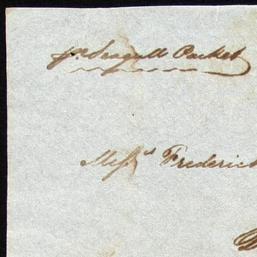 pr Seagull Packet
Messrs Frederick